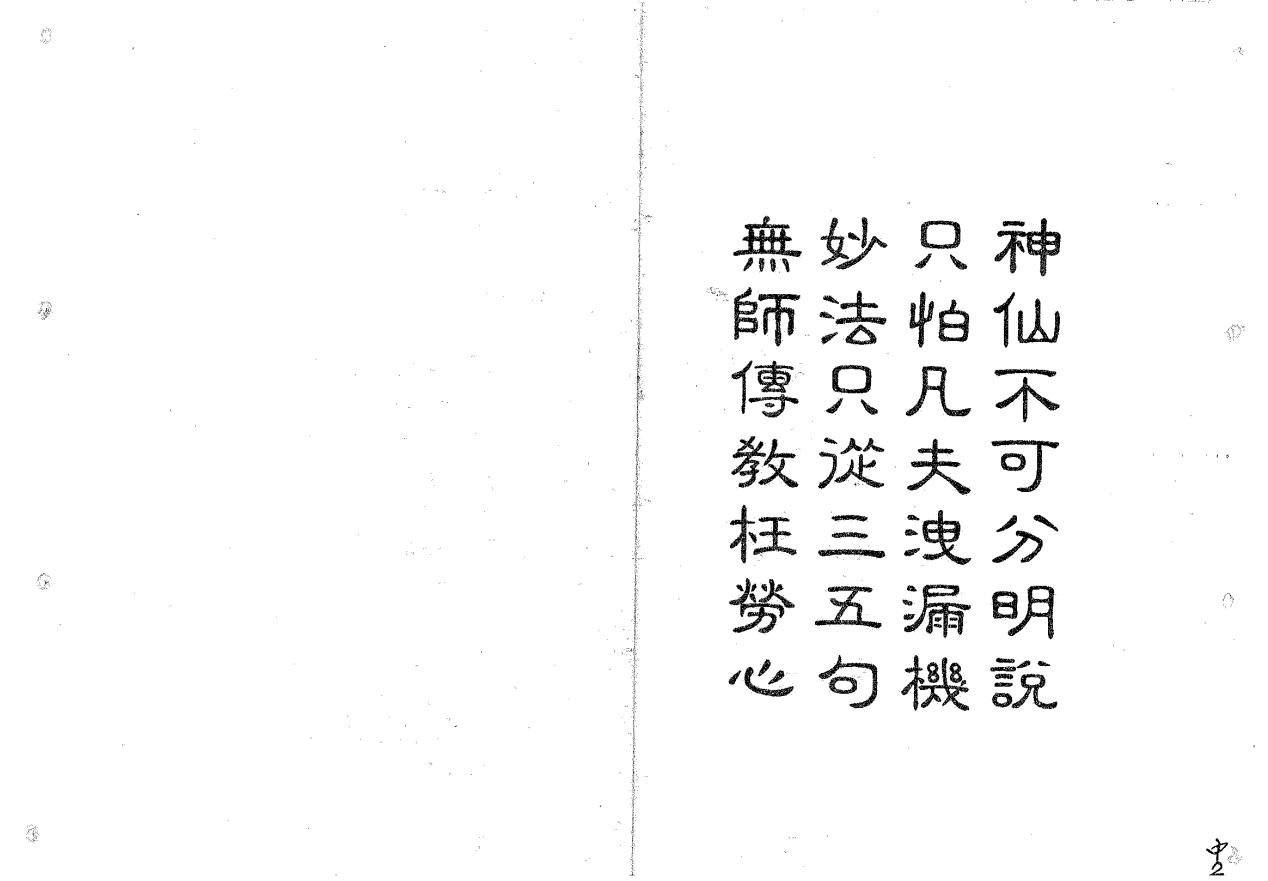 神仙不可分明說
只怕凡夫洩漏機
妙法只從三五句
無師傳教枉勞心